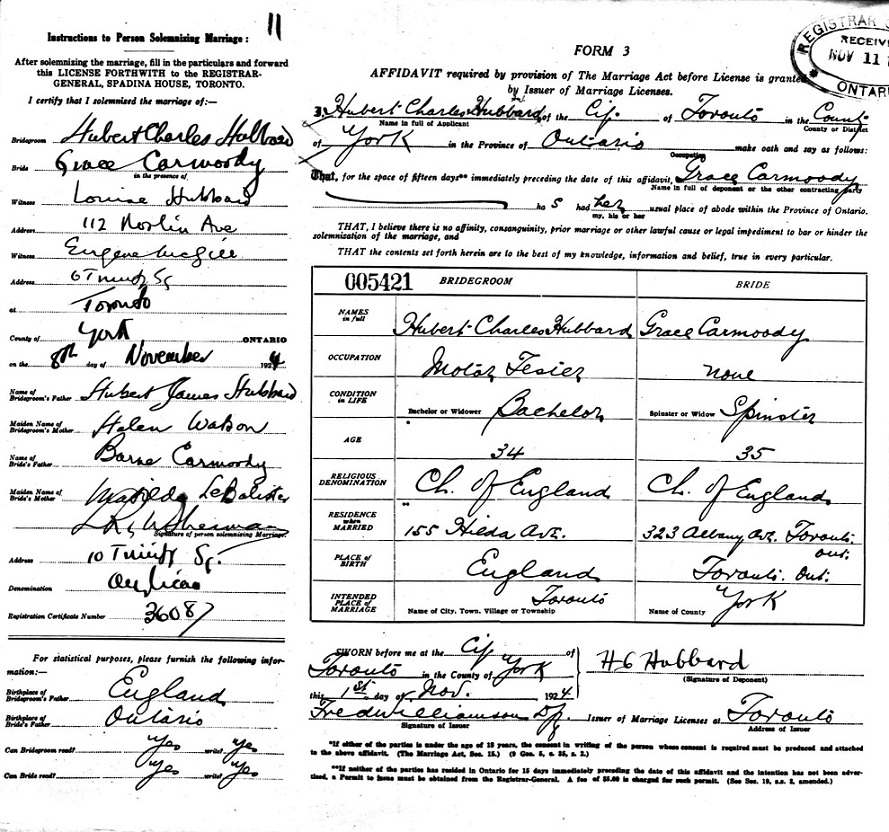 11
Instructions to Person Solemnizing Marriage:
After solemnizing the marriage, fill in the particulars and forward
this LICENSE FORTHWITH to the REGISTRAR-
GENERAL, SPADINA HOUSE, TORONTO.
I certify that I solemnized the marriage of:—
Bridegroom Hubert Charles Hubbard
Bride Grace Carmody
in the presence of,
Witness Louise Hubbard
Address 112 Ave
Witness Eugene McGill
Address 6 Trinity Sq
at Toronto
County of York ONTARIO
on the 8th day of November 1924
Name of Bridegroom's Father Hubert James Hubbard
Maiden Name of Bridegroom's Mother Helen Watson
Name of Bride's Father Carmody
Maiden Name of Bride's Mother Matilda
Signature of person solemnizing Marriage.
Address 10 Trinity Sq.
Denomination Anglican
Registration Certificate Number 36087
For statistical purposes, please furnish the following infor-
mation:—
Birthplace of Bridegroom's Father England
Birthplace of Bride's Father Ontario
Can Bridegroom read? Yes write? Yes
Can Bride read? Yes write? Yes
REGISTRAR
RECEIV
NOV 11
ONTARI
FORM 3
AFFIDAVIT required by provision of The Marriage Act before License is granted
by Issuer of Marriage Licenses.
I, Hubert Charles Hubbard of the City of Toronto in the County
Name in full of Applicant County or District
of York in the Province of Ontario make oath and say as follows:
Occupation
That, for the space of fifteen days** immediately preceding the date of this affidavit, Grace Carmody
Name in full of deponent or the other contracting party
has had her usual place of abode within the Province of Ontario.
my, his or her
THAT, I believe there is no affinity, consanguinity, prior marriage or other lawful cause or legal impediment to bar or hinder the
solemnization of the marriage, and
THAT the contents set forth herein are to the best of my knowledge, information and belief, true in every particular.
005421 BRIDEGROOM BRIDE
NAMES in full Hubert Charles Hubbard Grace Carmoody
OCCUPATION Motor Tester none
CONDITION in LIFE Bachelor or Widower Bachelor Spinster or Widow Spinster
AGE 34 35
RELIGIOUS DENOMINATION Ch. of England Ch. of England
RESIDENCE when MARRIED 155 Hilda Ave. 323 Albany Ave. Toronto. Ont.
PLACE of BIRTH England Toronto. Ont.
INTENDED PLACE of MARRIAGE Name of City, Town, Village or Township Toronto Name of County York
SWORN before me at the City of
Toronto in the County of York
this 1st day of Nov. 1924
H C Hubbard
(Signature of Deponent)
Fred Williamson Issuer of Marriage Licenses at Toronto
Signature of Issuer Address of Issuer
*If either of the parties is under the age of 18 years, the consent in writing of the person whose consent is required must be produced and attached
to the above affidavit. (The Marriage Act, Sec. 15.) (9 Geo. 5, c. 35, s. 2.)
**If neither of the parties has resided in Ontario for 15 days immediately preceding the date of this affidavit and the intention has not been adver-
tised, a Permit to issue must be obtained from the Registrar-General. A fee of $5.00 is charged for such permit. (See Sec. 19, s.s. 2, amended.)